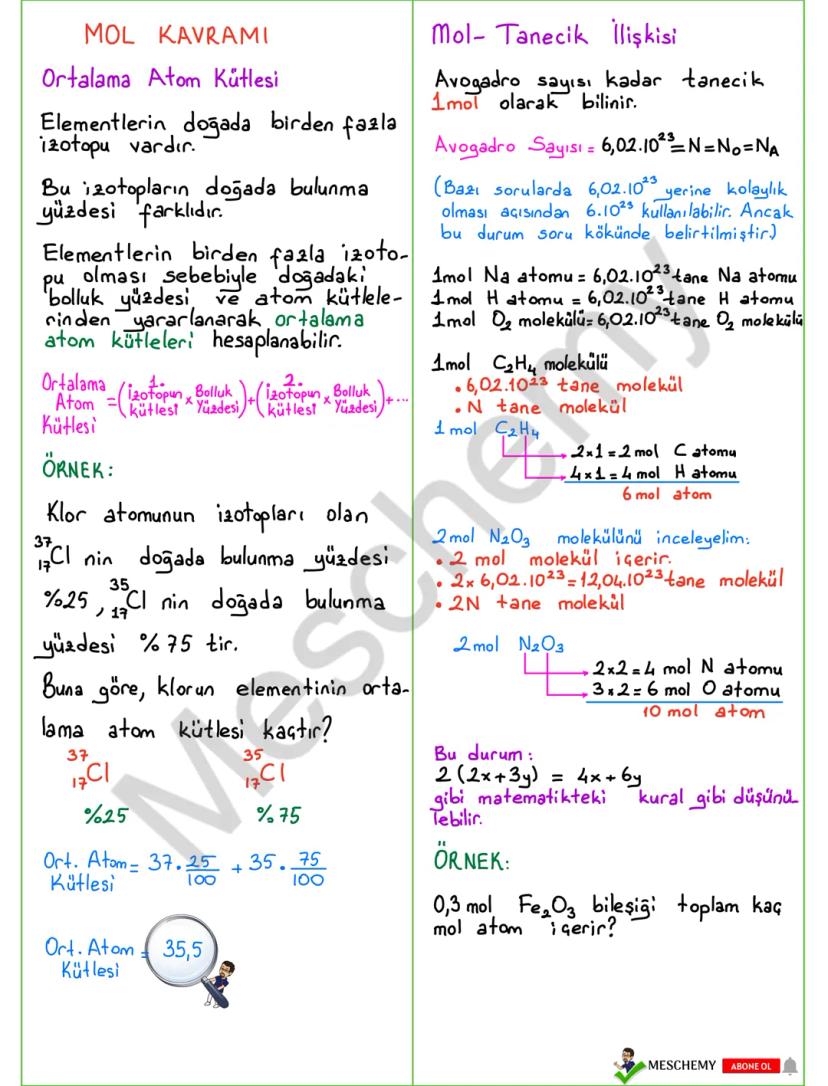 MOL KAVRAMI
Ortalama Atom Kütlesi
Elementlerin doğada birden fazla
izotopu vardır.
Bu izotopların doğada bulunma
yüzdesi farklıdır.
Elementlerin birden fazla izoto-
pu olması sebebiyle doğadaki
bolluk yüzdesi ve atom kütlele-
rinden yararlanarak ortalama
atom kütleleri hesaplanabilir.
Ortalama Atom Kütlesi = (1. izotopun kütlesi x Bolluk Yüzdesi) + (2. izotopun kütlesi x Bolluk Yüzdesi) + ...
ÖRNEK:
Klor atomunun izotopları olan
³⁷₁₇Cl nin doğada bulunma yüzdesi
%25, ³⁵₁₇Cl nin doğada bulunma
yüzdesi %75 tir.
Buna göre, klorun elementinin orta-
lama atom kütlesi kaçtır?
³⁷₁₇Cl ³⁵₁₇Cl
%25 %75
Ort. Atom Kütlesi = 37 . 25/100 + 35 . 75/100
Ort. Atom Kütlesi = 35,5
Mol- Tanecik İlişkisi
Avogadro sayısı kadar tanecik
1mol olarak bilinir.
Avogadro Sayısı = 6,02.10²³ = N = N₀ = Nᴀ
(Bazı sorularda 6,02.10²³ yerine kolaylık
olması açısından 6.10²³ kullanılabilir. Ancak
bu durum soru kökünde belirtilmiştir.)
1mol Na atomu = 6,02.10²³ tane Na atomu
1mol H atomu = 6,02.10²³ tane H atomu
1mol O₂ molekülü = 6,02.10²³ tane O₂ molekülü
1mol C₂H₄ molekülü
• 6,02.10²³ tane molekül
• N tane molekül
1 mol C₂H₄
2x1 = 2 mol C atomu
4x1 = 4 mol H atomu
6 mol atom
2mol N₂O₃ molekülünü inceleyelim:
• 2 mol molekül içerir.
• 2x 6,02.10²³ = 12,04.10²³ tane molekül
• 2N tane molekül
2mol N₂O₃
2x2 = 4 mol N atomu
3x2 = 6 mol O atomu
10 mol atom
Bu durum:
2 (2x+3y) = 4x+6y
gibi matematikteki kural gibi düşünü
lebilir.
ÖRNEK:
0,3 mol Fe₂O₃ bileşiği toplam kaç
mol atom içerir?
Meschemy
MESCHEMY ABONE OL